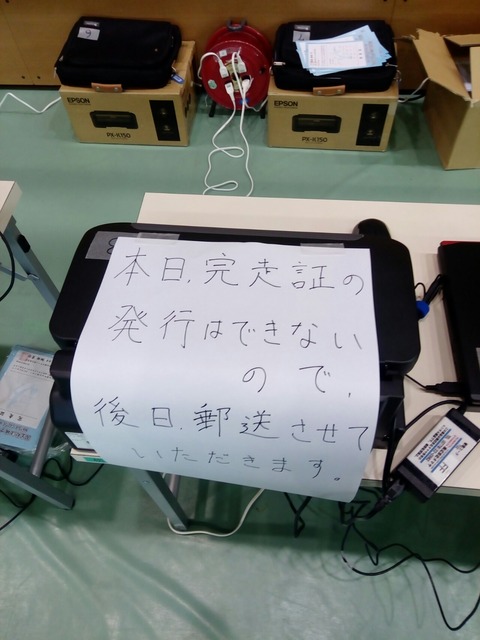 EPSON
PX-K150
EPSON
PX-K150
本日、完走証の
発行はできない
ので、
後日、郵送させて
いただきます。